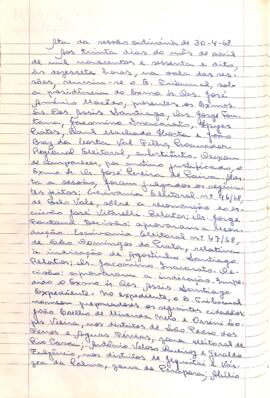 Ata da sessão ordinária de 30-4-68.
Aos trinta dias do mês de abril
de mil novecentos e sessenta e oito,
às dezessete horas, na sala das ses-
sões, reuniu-se o E. Tribunal, sob
a presidência do Exmo. Sr. Des. José
Américo Macêdo, presentes os Exmos.
Srs. Des. Assis Santiago, Drs. Jorge Fon-
tana, Jacomino Inacarato,
Prates, Raul Machado Horta e João
Braz da Costa Val Filho, Procurador
Regional Eleitoral, substituto. Deixou
de comparecer, por motivo justificado, o
Exmo. Sr. Dr. José Pereira de Paiva.
a sessão, foram julgados os seguin-
tes feitos: Eleitoral nº 46/68,
de Belo Vale, sobre a recondução do es-
crivão José Vitarelli. Relator: Dr. Jorge
Fontana. Decisão: aprovaram a recon-
dução. Eleitoral nº 47/68,
de São Domingos do Prata, relativo
à indicação de Agostinho Santiago.
Relator: Dr. Jacomino Inacarato. De-
cisão: aprovaram a indicação.
o Exmo. Sr. Des. Assis Santiago.
Expediente: No expediente, o E. Tribunal
nomeou preparadores os seguintes cidadãos:
João Coelho de Miranda e
Vieira, nos distritos de São Pedro dos
Ferros e Águas Férreas, zona eleitoral de
Rio Casca; Antônio Veloso e Geraldo
Fulgêncio, nos distritos de Jequitaí e Vár-
zea da Palma, zona de Pirapora;